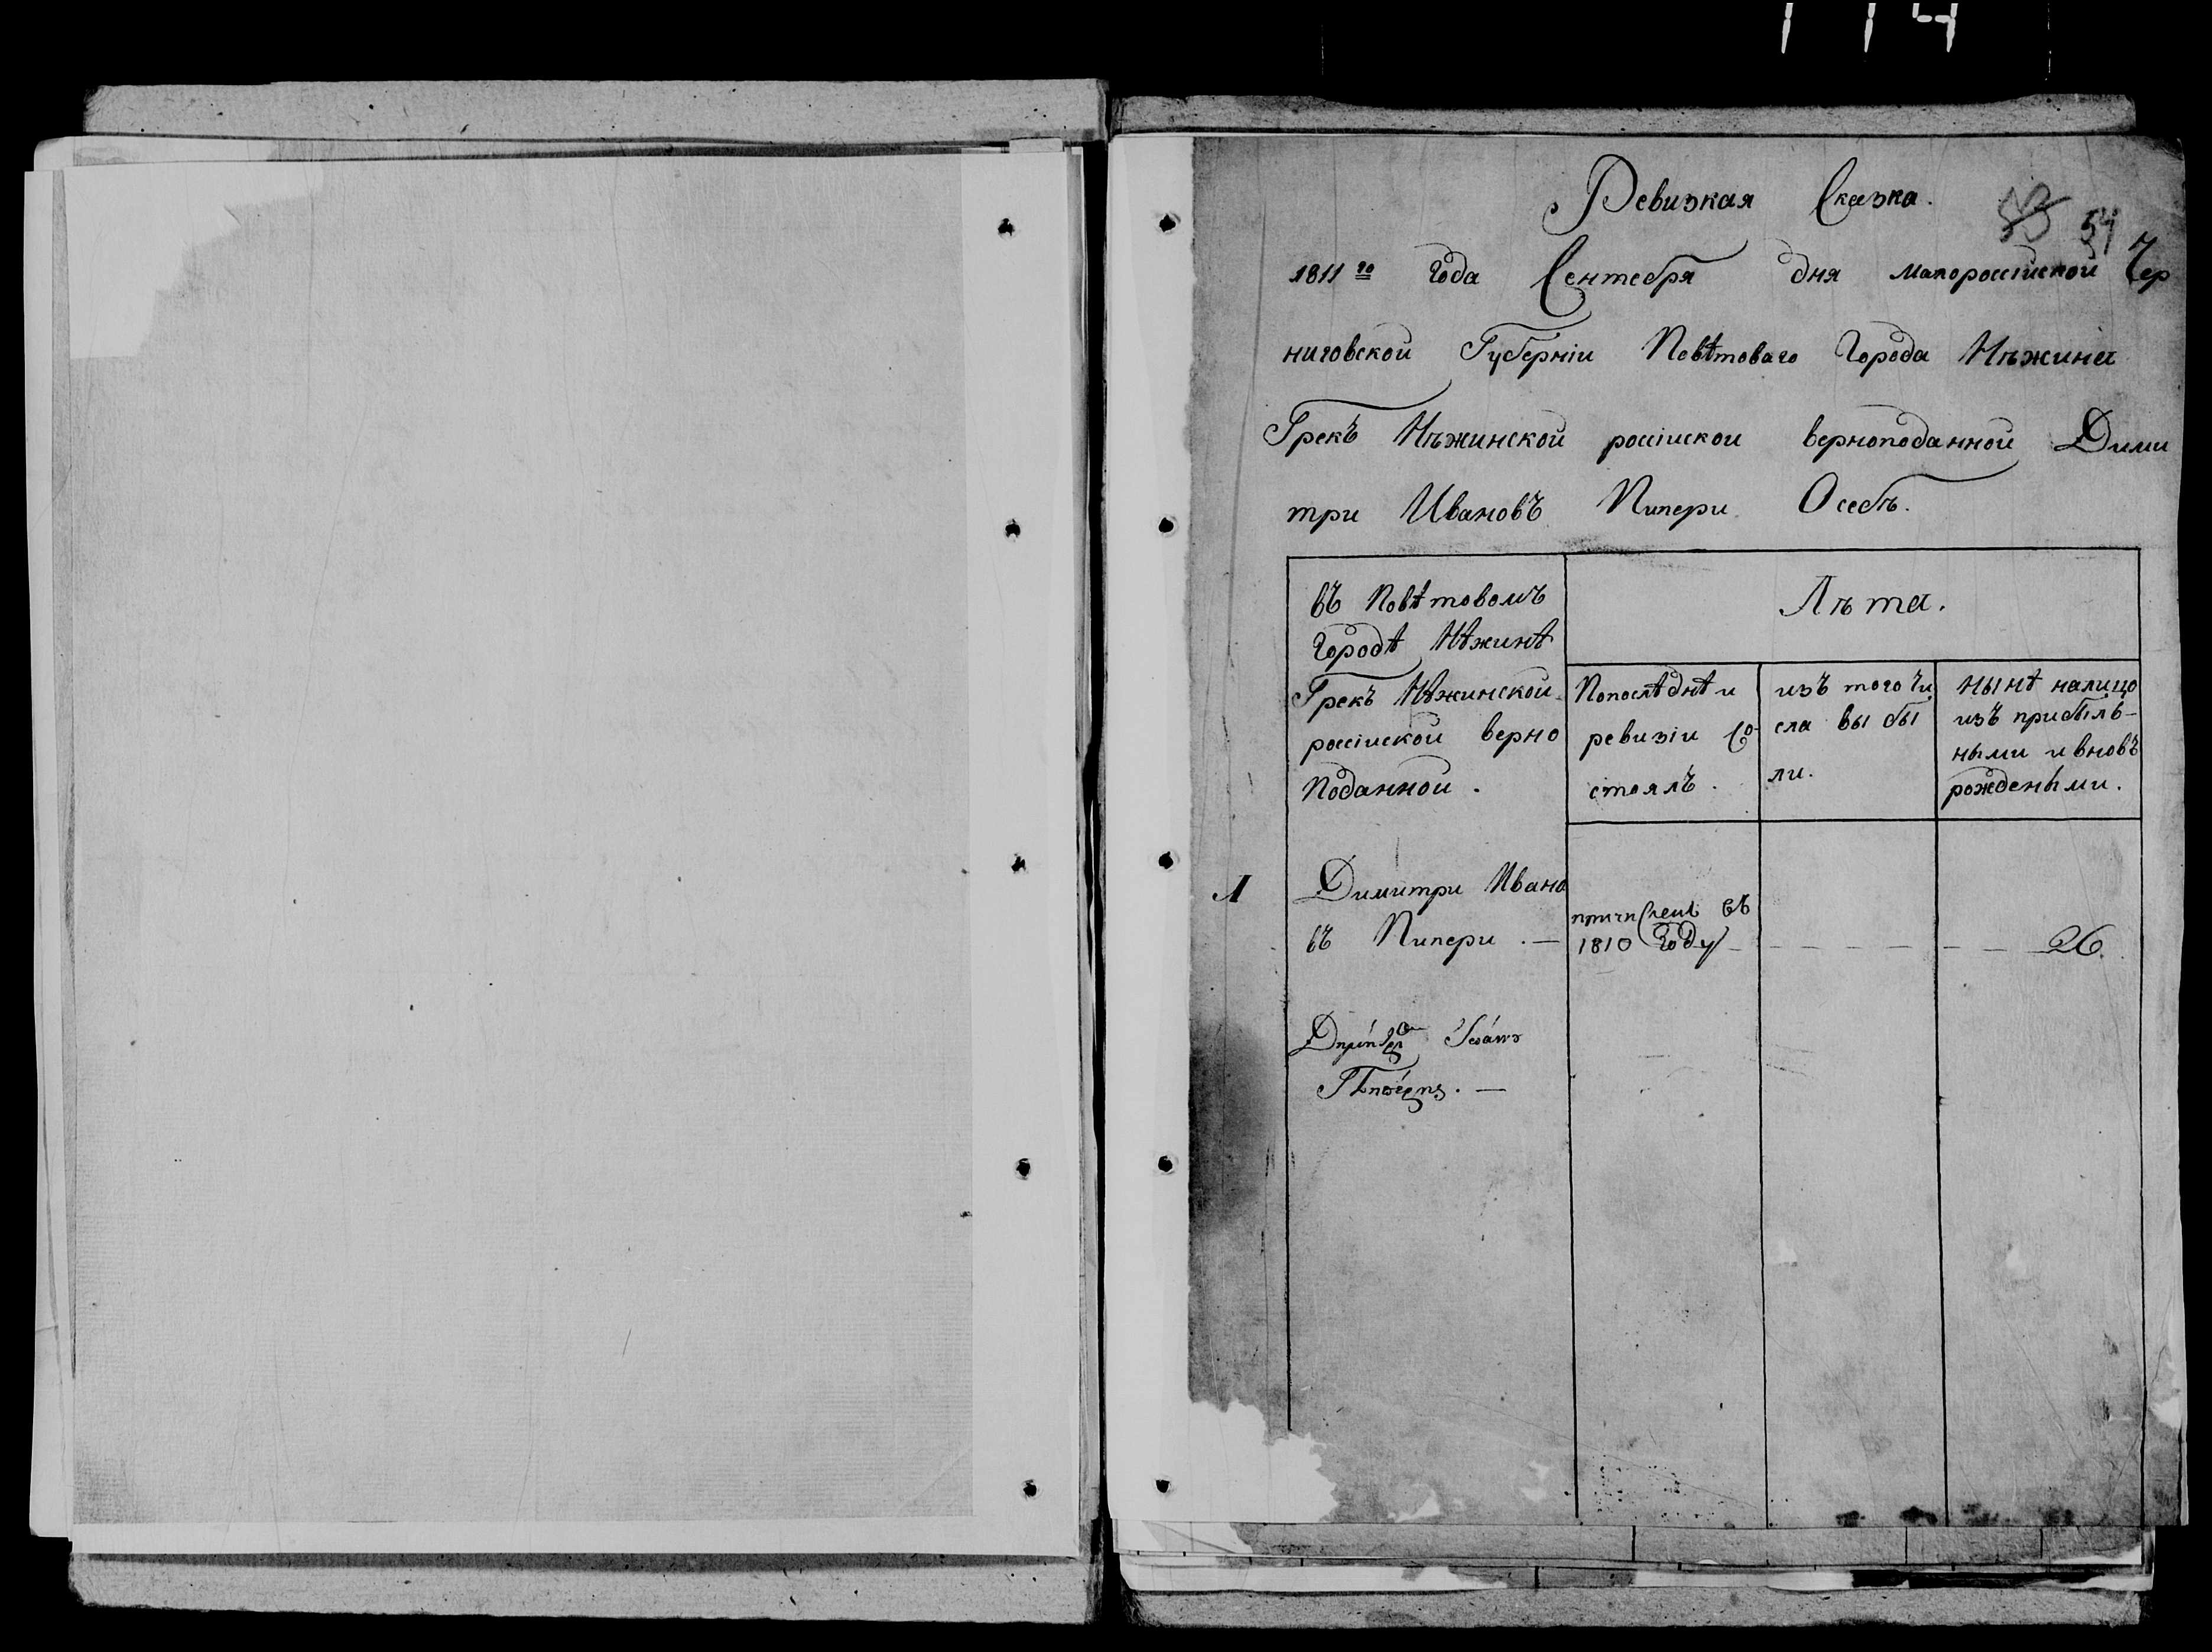 114
Ревизкая Сказка.
53 54
1811го Года Сентебря дня малоросіиской Чер
ниговской Губерніи Повѣтоваго Города Нѣжина
Грекъ Нѣжинской росіиской верноподанной Дими
три Ивановъ Пипери Осебѣ.
въ Повѣтовомъ
Городѣ Нѣжинѣ
Грекъ Нѣжинской
росіиской верно
поданной.
Лѣта.
Попослѣднѣи
ревизіи Со
стоялъ.
изъ того чи
сла выбы
ли.
нынѣ налицо
изъ прибыль-
ными ивновь
рождеными.
1 Димитри Ивано
въ Пипери. —
причисленъ въ
1810 Году — — — — — 26.
Πιπέρης. —